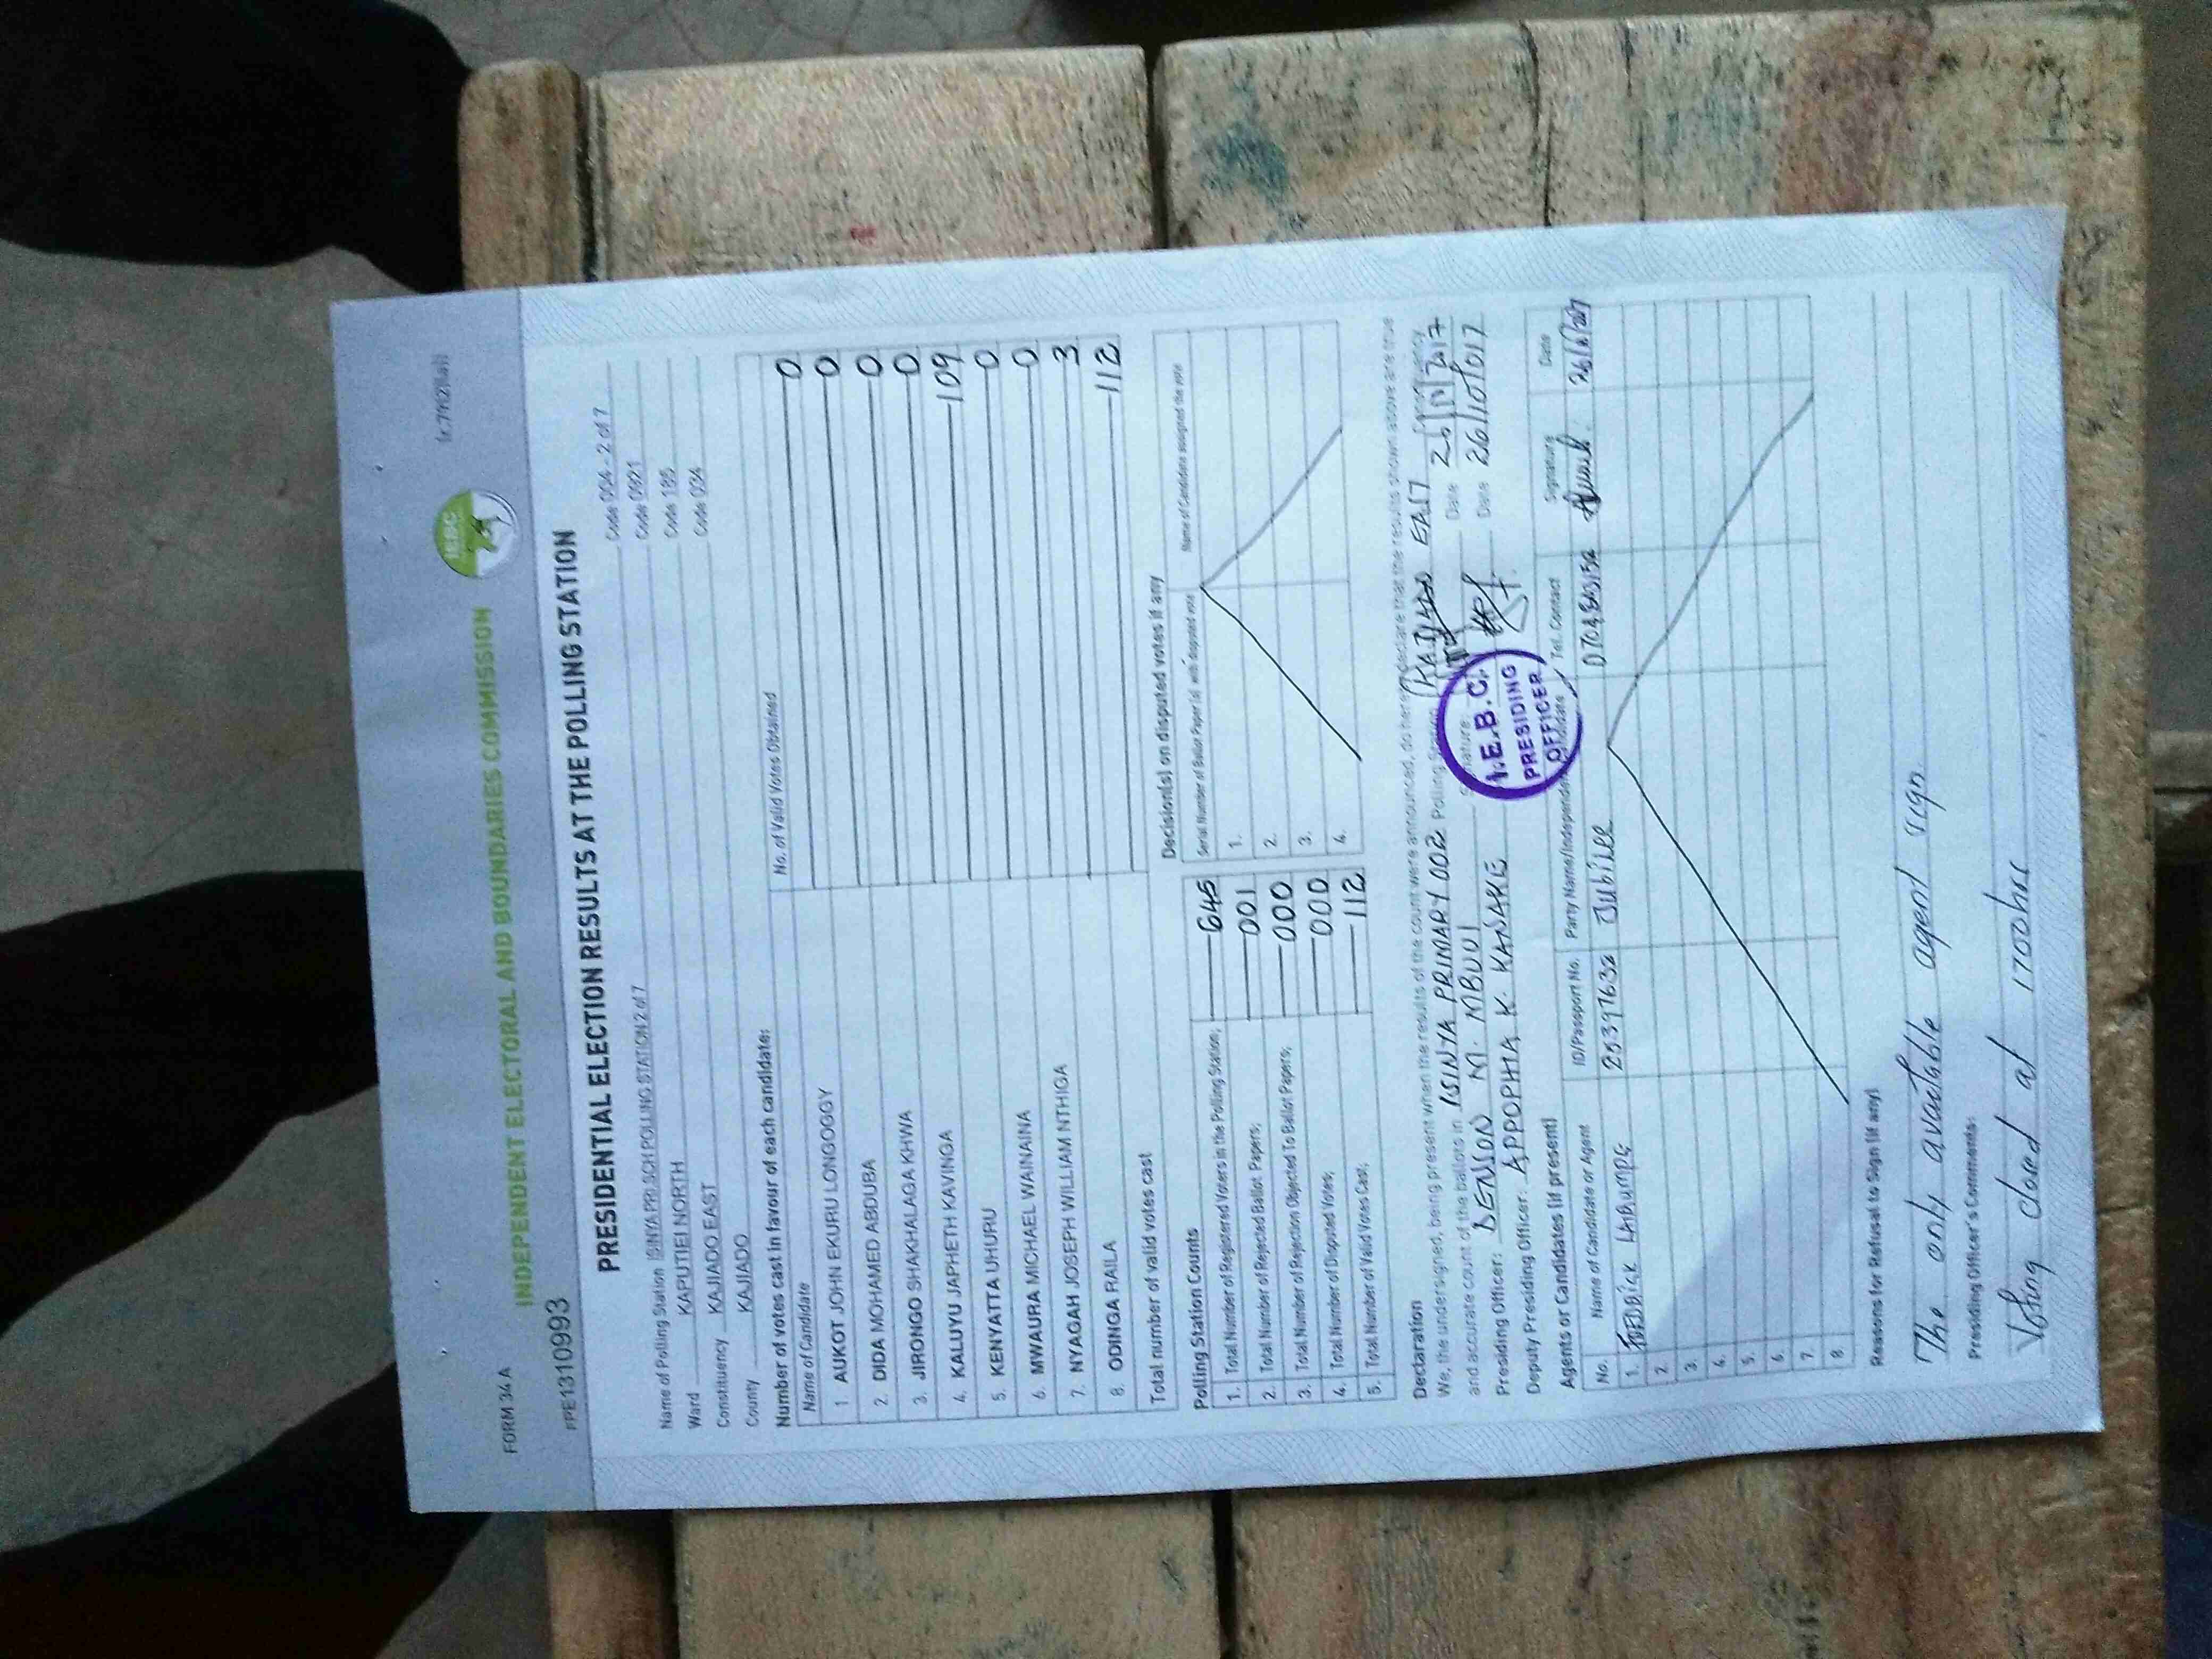 FORM 34 A
(r.79(2)(a))
INDEPENDENT ELECTORAL AND BOUNDARIES COMMISSION
IEBC
PRE1310993
PRESIDENTIAL ELECTION RESULTS AT THE POLLING STATION
Name of Polling Station ISINYA PRI SCH POLLING STATION 2 of 7 Code 004 - 2 of 7
Ward KAPUTIEI NORTH Code 0921
Constituency KAJIADO EAST Code 185
County KAJIADO Code 034
Number of votes cast in favour of each candidate:
Name of Candidate No. of Valid Votes Obtained
1 AUKOT JOHN EKURU LONGOGGY 0
2. DIDA MOHAMED ABDUBA 0
3. JIRONGO SHAKHALAGA KHWA 0
4. KALUYU JAPHETH KAVINGA 0
5. KENYATTA UHURU 109
6. MWAURA MICHAEL WAINAINA 0
7. NYAGAH JOSEPH WILLIAM NTHIGA 0
8. ODINGA RAILA 3
Total number of valid votes cast 112
Polling Station Counts
1. Total Number of Registered Voters in the Polling Station; 645
2. Total Number of Rejected Ballot Papers; 001
3. Total Number of Rejection Objected To Ballot Papers; 000
4. Total Number of Disputed Votes; 000
5. Total Number of Valid Votes Cast; 112
Decision(s) on disputed votes if any
Serial Number of Ballot Paper (s) with disputed vote Name of Candidate assigned the vote
1.
2.
3.
4.
Declaration
We, the undersigned, being present when the results of the count were announced, do hereby declare that the results shown above are true
and accurate count of the ballots in ISINYA PRIMARY 002 Polling Station, KAJIADO EAST
Presiding Officer: DENSON M. MBUUI Signature Date 26/10/2017
Deputy Presiding Officer: APPOPHIA K. KANAKE Date 26/10/2017
I.E.B.C.
PRESIDING
OFFICER
Agents or Candidates (if present)
No. Name of Candidate or Agent ID/Passport No. Party Name/Independent Candidate Tel. Contact Signature Date
1. 25397632 Jubilee
2.
3.
4.
5.
6.
7.
8.
Reasons for Refusal to Sign (if any)
The only available agent sign.
Presiding Officer's Comments:
Voting closed at 1700hrs